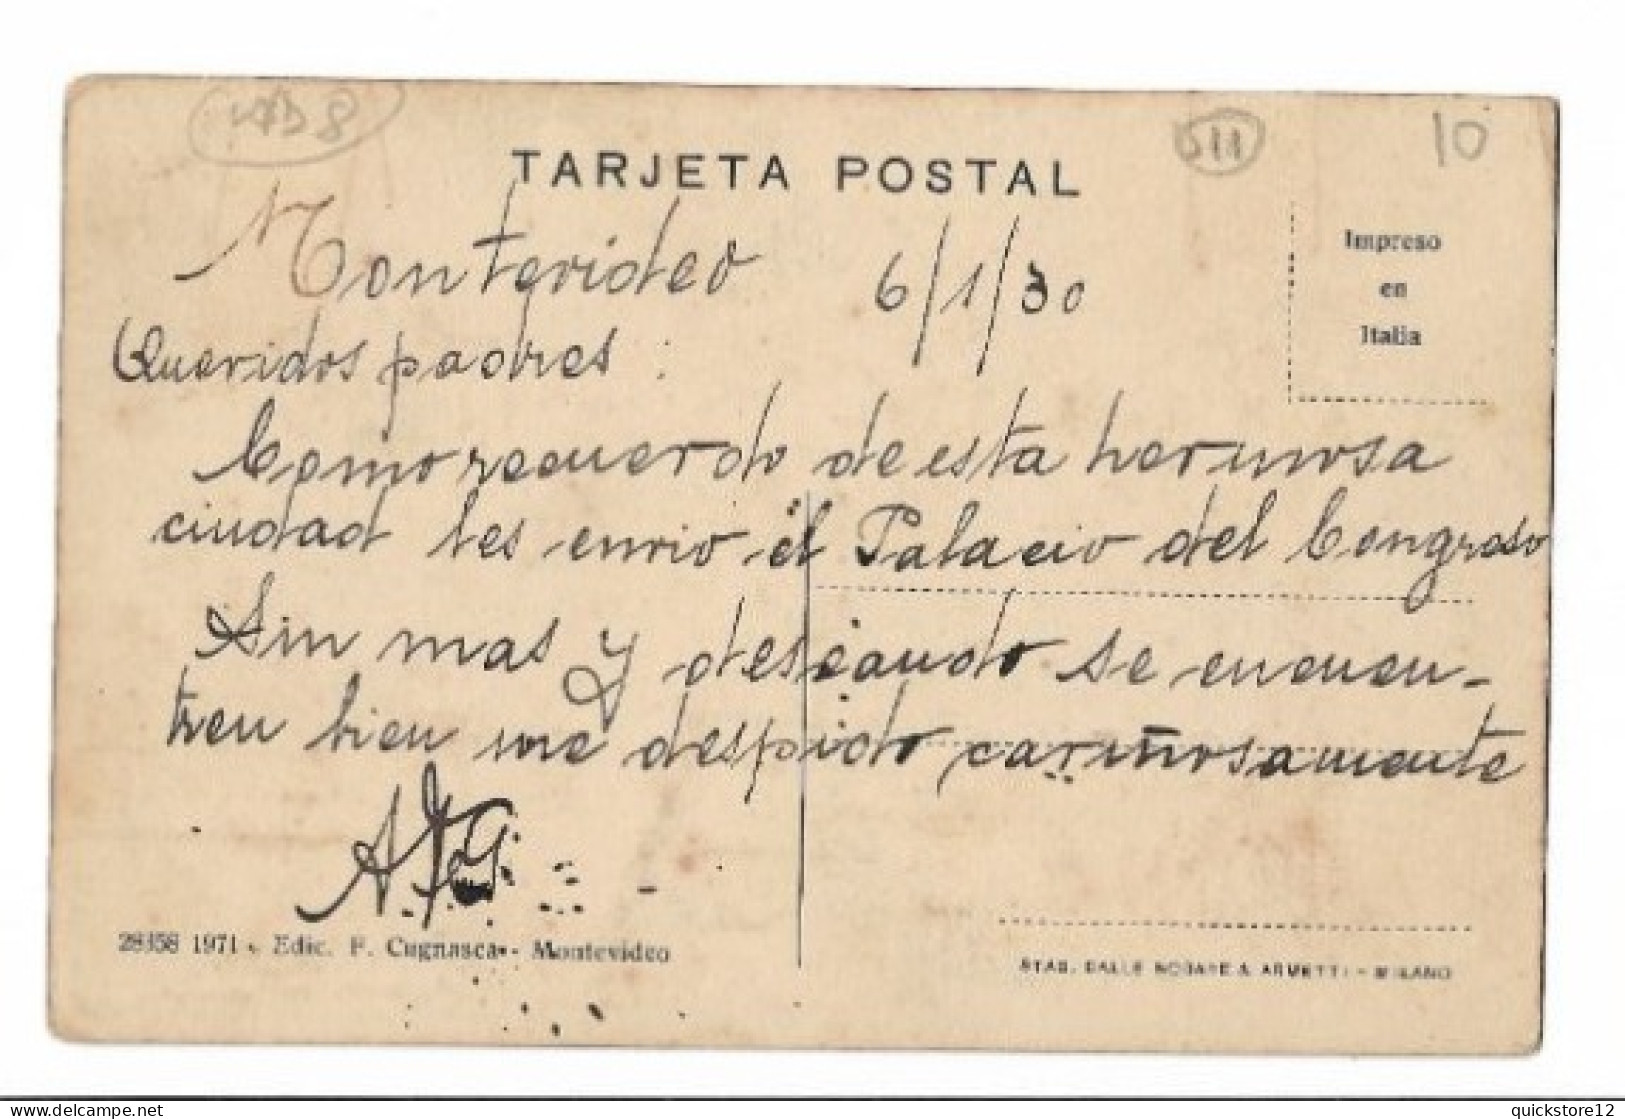 511
10
TARJETA POSTAL
Montevideo 6/1/30
Impreso
en
Italia
Queridos padres:
Como recuerdo de esta hermosa
ciudad les envio el Palacio del Congreso
Sin mas y deseando se encuen-
tren bien me despido cariñosamente
28358 1971 - Edic. F. Cugnasca - Montevideo
STAB. DALLE NOGARE & ARMETTI - MILANO
delcampe.net
quickstore12